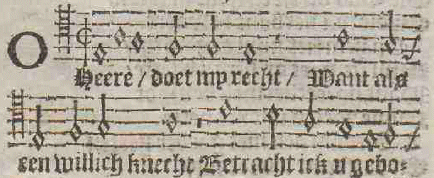 O Heere / doet my recht / Want als
een willich knecht Betracht ick u gebo⸗